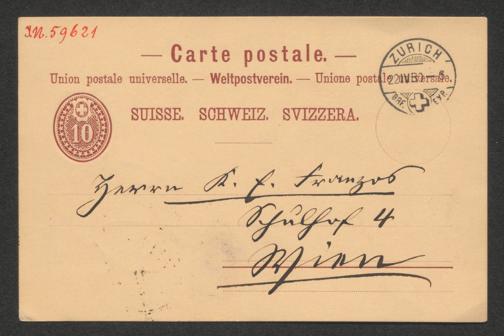 I.N. 59621
— Carte postale. —
Union postale universelle. — Weltpostverein. — Unione postale universale.
SUISSE. SCHWEIZ. SVIZZERA.
10
ZÜRICH
BRF. EXP.
Herrn K. E. Franzos
Schulhof 4
Wien